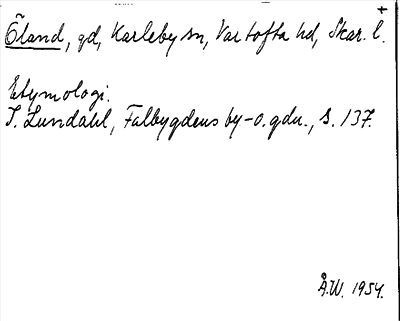 +
Öland, gd, Karleby sn, Vartofta hd, Skar. l.
Etymologi.
I. Lundahl, Falbygdens by-o.gdn., s. 137.
Å.W. 1954.